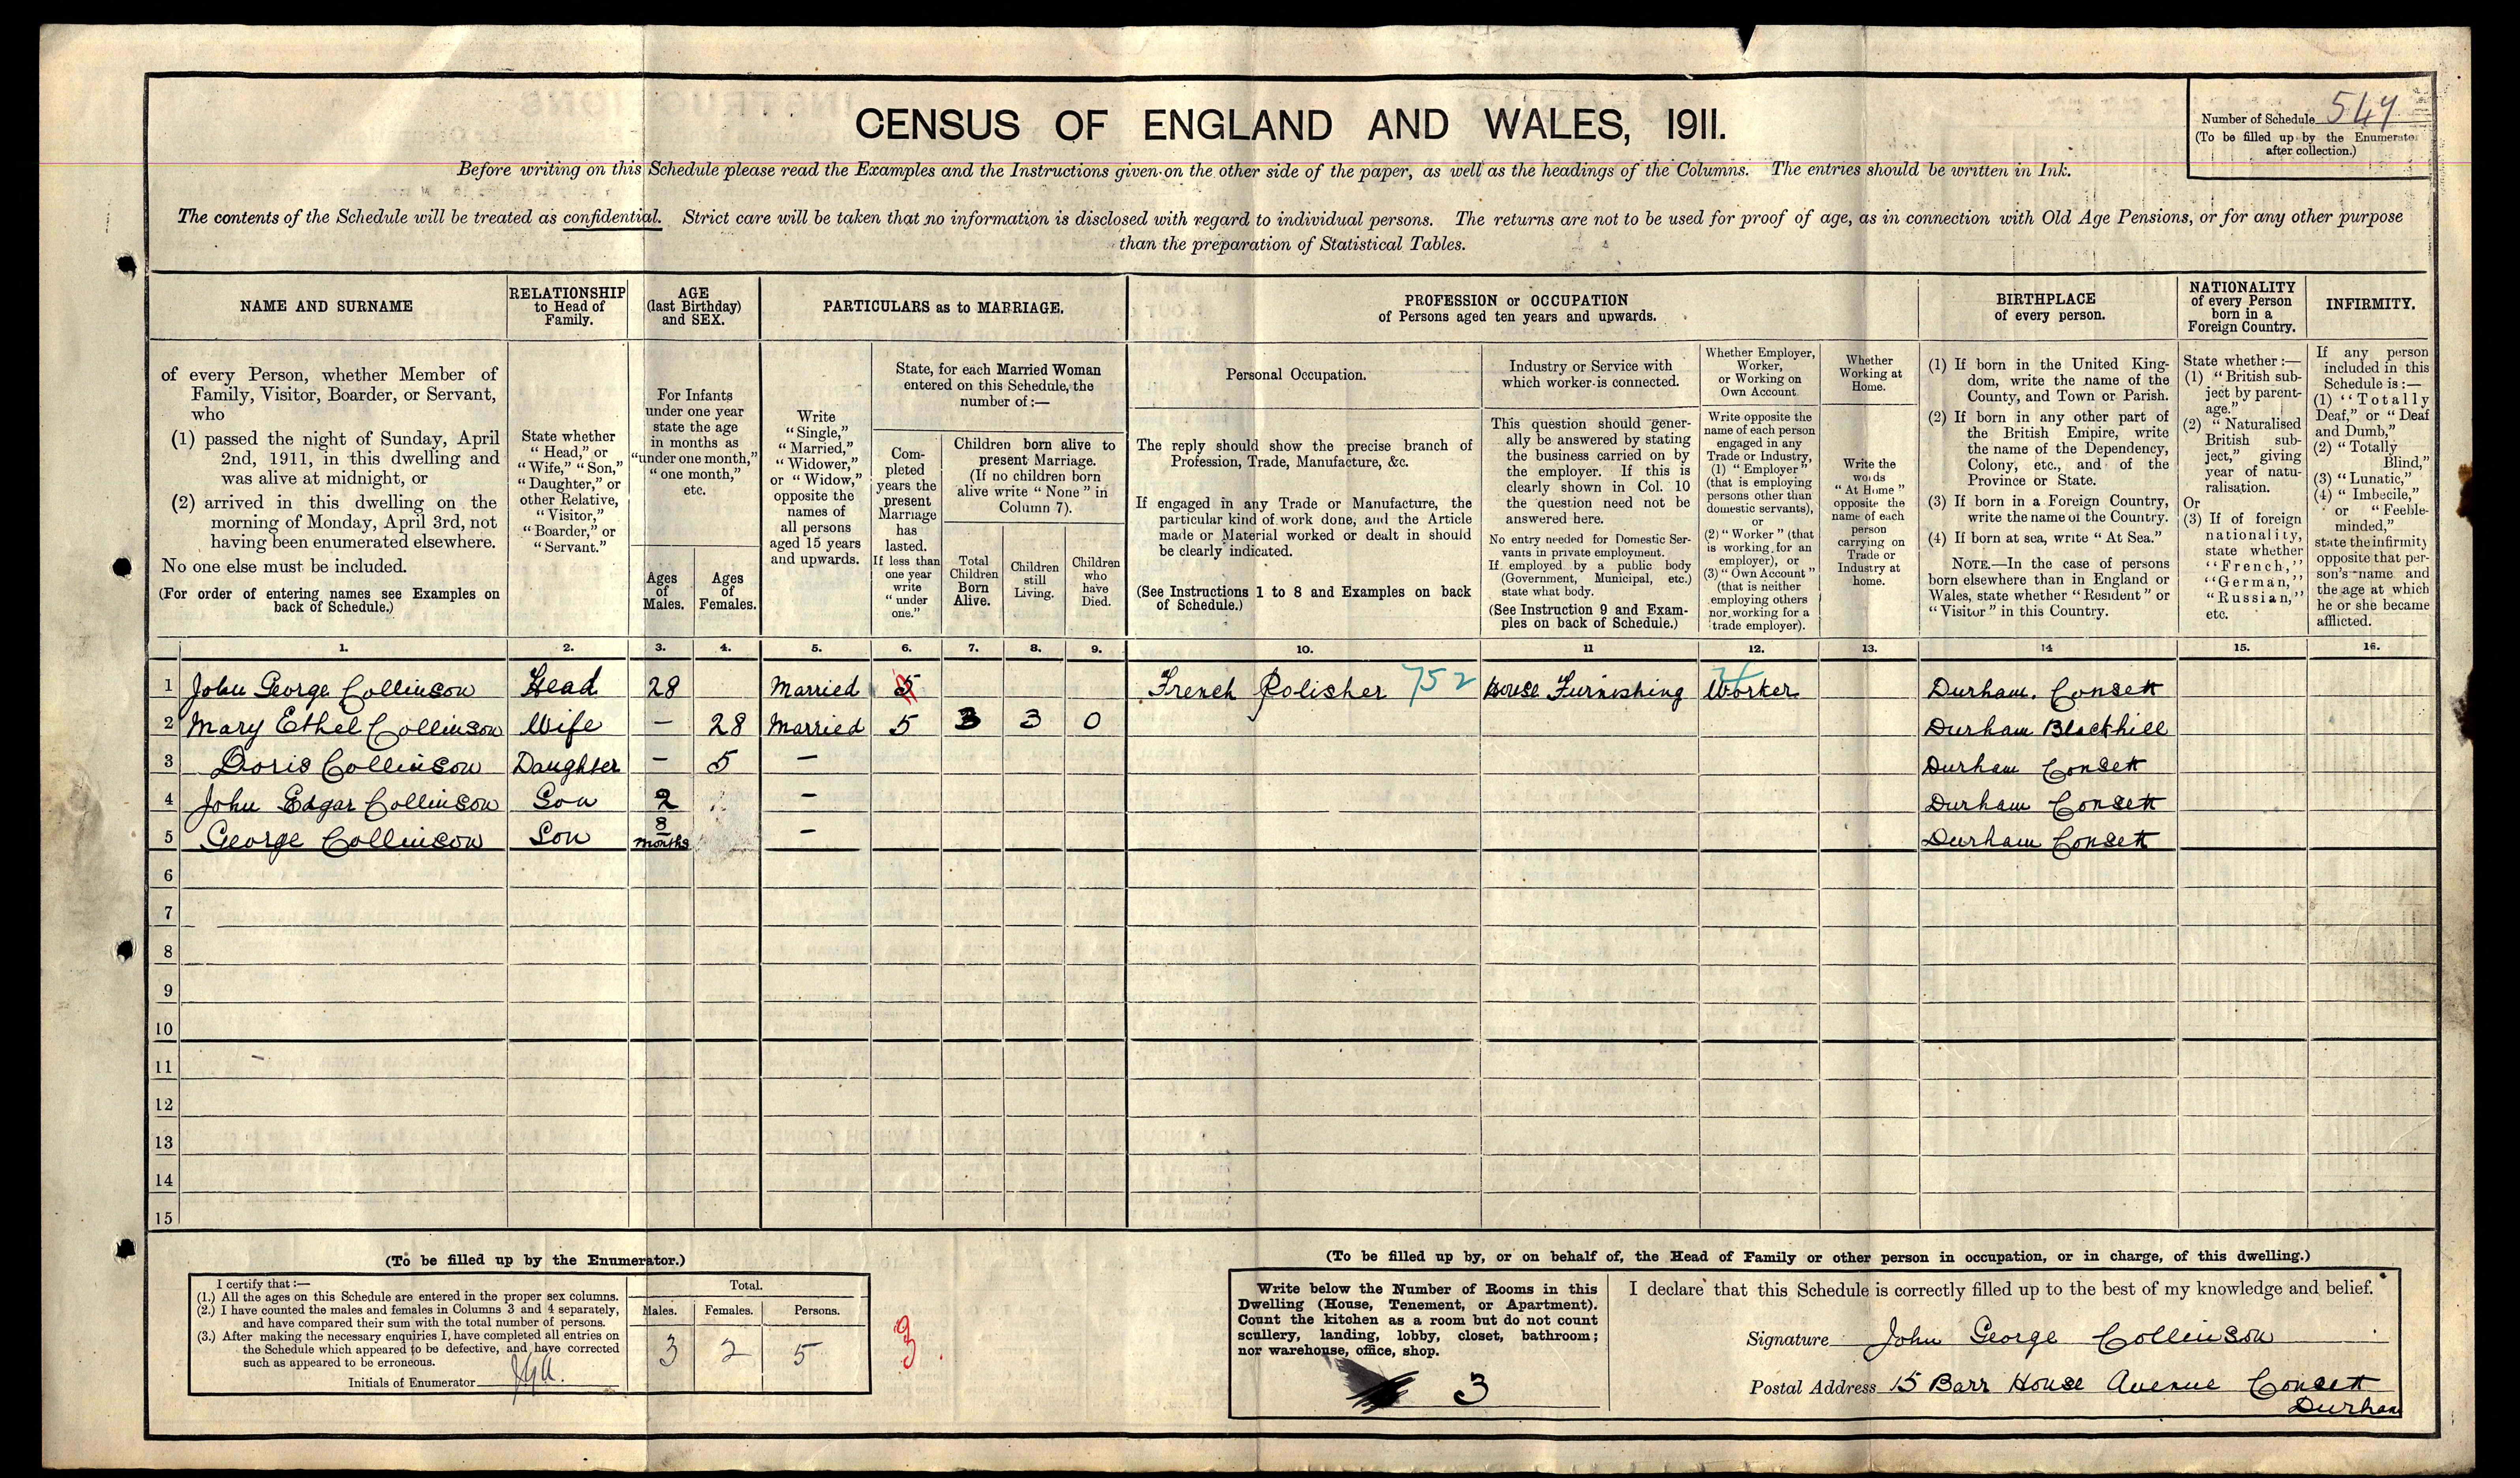 CENSUS OF ENGLAND AND WALES, 1911.
Number of Schedule 547
(To be filled up by the Enumerator
after collection.)
Before writing on this Schedule please read the Examples and the Instructions given on the other side of the paper, as well as the headings of the Columns. The entries should be written in Ink.
The contents of the Schedule will be treated as confidential. Strict care will be taken that no information is disclosed with regard to individual persons. The returns are not to be used for proof of age, as in connection with Old Age Pensions, or for any other purpose
than the preparation of Statistical Tables.
NAME AND SURNAME
of every Person, whether Member of
Family, Visitor, Boarder, or Servant,
who
(1) passed the night of Sunday, April
2nd, 1911, in this dwelling and
was alive at midnight, or
(2) arrived in this dwelling on the
morning of Monday, April 3rd, not
having been enumerated elsewhere.
No one else must be included.
(For order of entering names see Examples on
back of Schedule.)
RELATIONSHIP
to Head of
Family.
State whether
"Head," or
"Wife," "Son,"
"Daughter," or
other Relative,
"Visitor,"
"Boarder," or
"Servant."
AGE
(last Birthday)
and SEX.
For Infants
under one year
state the age
in months as
"under one month,"
"one month,"
etc.
Ages
of
Males.
Ages
of
Females.
PARTICULARS as to MARRIAGE.
Write
"Single,"
"Married,"
"Widower,"
or "Widow,"
opposite the
names of
all persons
aged 15 years
and upwards.
State, for each Married Woman
entered on this Schedule, the
number of:—
Com-
pleted
years the
present
Marriage
has
lasted.
If less than
one year
write
"under
one."
Children born alive to
present Marriage.
(If no children born
alive write "None" in
Column 7).
Total
Children
Born
Alive.
Children
still
Living.
Children
who
have
Died.
PROFESSION or OCCUPATION
of Persons aged ten years and upwards.
Personal Occupation.
The reply should show the precise branch of
Profession, Trade, Manufacture, &c.
If engaged in any Trade or Manufacture, the
particular kind of work done, and the Article
made or Material worked or dealt in should
be clearly indicated.
(See Instructions 1 to 8 and Examples on back
of Schedule.)
Industry or Service with
which worker is connected.
This question should gener-
ally be answered by stating
the business carried on by
the employer. If this is
clearly shown in Col. 10
the question need not be
answered here.
No entry needed for Domestic Ser-
vants in private employment.
If employed by a public body
(Government, Municipal, etc.)
state what body.
(See Instruction 9 and Exam-
ples on back of Schedule.)
Whether Employer,
Worker,
or Working on
Own Account
Write opposite the
name of each person
engaged in any
Trade or Industry,
(1) "Employer"
(that is employing
persons other than
domestic servants),
or
(2) "Worker" (that
is working for an
employer), or
(3) "Own Account"
(that is neither
employing others
nor working for a
trade employer).
Whether
Working at
Home.
Write the
words
"At Home"
opposite the
name of each
person
carrying on
Trade or
Industry at
home.
BIRTHPLACE
of every person.
(1) If born in the United King-
dom, write the name of the
County, and Town or Parish.
(2) If born in any other part of
the British Empire, write
the name of the Dependency,
Colony, etc., and of the
Province or State.
(3) If born in a Foreign Country,
write the name of the Country.
(4) If born at sea, write "At Sea."
NOTE.—In the case of persons
born elsewhere than in England or
Wales, state whether "Resident" or
"Visitor" in this Country.
NATIONALITY
of every Person
born in a
Foreign Country.
State whether:—
(1) "British sub-
ject by parent-
age."
(2) "Naturalised
British sub-
ject," giving
year of natu-
ralisation.
Or
(3) If of foreign
nationality,
state whether
"French,"
"German,"
"Russian,"
etc.
INFIRMITY.
If any person
included in this
Schedule is:—
(1) "Totally
Deaf," or "Deaf
and Dumb,"
(2) "Totally
Blind,"
(3) "Lunatic,"
(4) "Imbecile,"
or "Feeble-
minded,"
state the infirmity
opposite that per-
son's name and
the age at which
he or she became
afflicted.
1. 2. 3. 4. 5. 6. 7. 8. 9. 10. 11 12. 13. 14 15. 16.
1 John George Collinson Head 28 Married 5 French Polisher 752 House Furnishing Worker Durham, Consett
2 Mary Ethel Collinson Wife — 28 Married 5 3 3 0 Durham Blackhill
3 Doris Collinson Daughter — 5 — Durham Consett
4 John Edgar Collinson Son 2 — Durham Consett
5 George Collinson Son 8 months — Durham Consett
6
7
8
9
10
11
12
13
14
15
(To be filled up by the Enumerator.)
I certify that:—
(1.) All the ages on this Schedule are entered in the proper sex columns.
(2.) I have counted the males and females in Columns 3 and 4 separately,
and have compared their sum with the total number of persons.
(3.) After making the necessary enquiries I have completed all entries on
the Schedule which appeared to be defective, and have corrected
such as appeared to be erroneous.
Initials of Enumerator
Total.
Males. Females. Persons.
3 2 5
3
(To be filled up by, or on behalf of, the Head of Family or other person in occupation, or in charge, of this dwelling.)
Write below the Number of Rooms in this
Dwelling (House, Tenement, or Apartment).
Count the kitchen as a room but do not count
scullery, landing, lobby, closet, bathroom;
nor warehouse, office, shop.
3
I declare that this Schedule is correctly filled up to the best of my knowledge and belief.
Signature John George Collinson
Postal Address 15 Barr House Avenue Consett
Durham